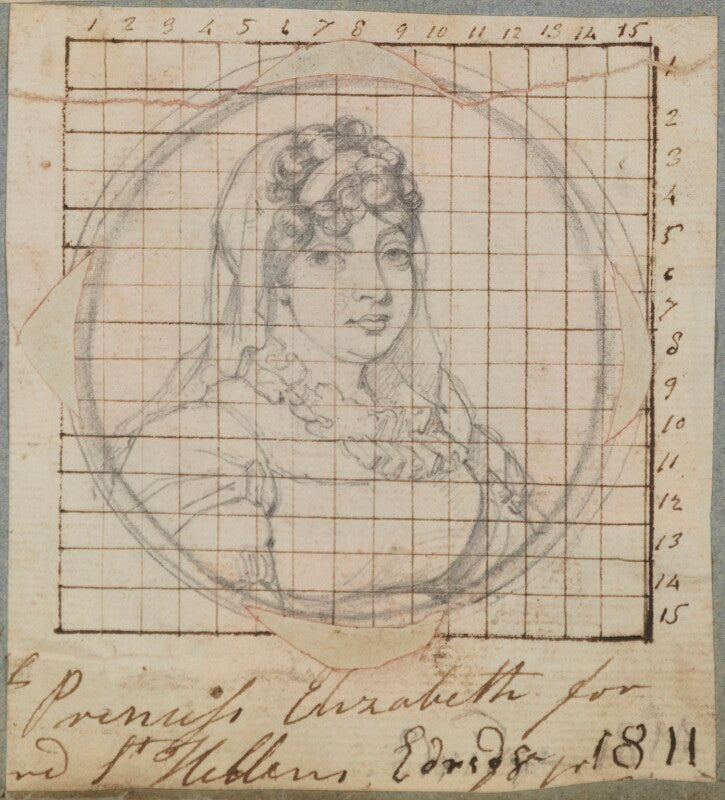 1 2 3 4 5 6 7 8 9 10 11 12 13 14 15
1
2
3
4
5
6
7
8
9
10
11
12
13
14
15
Princess Elizabeth for
St Hellens Edridge 1811